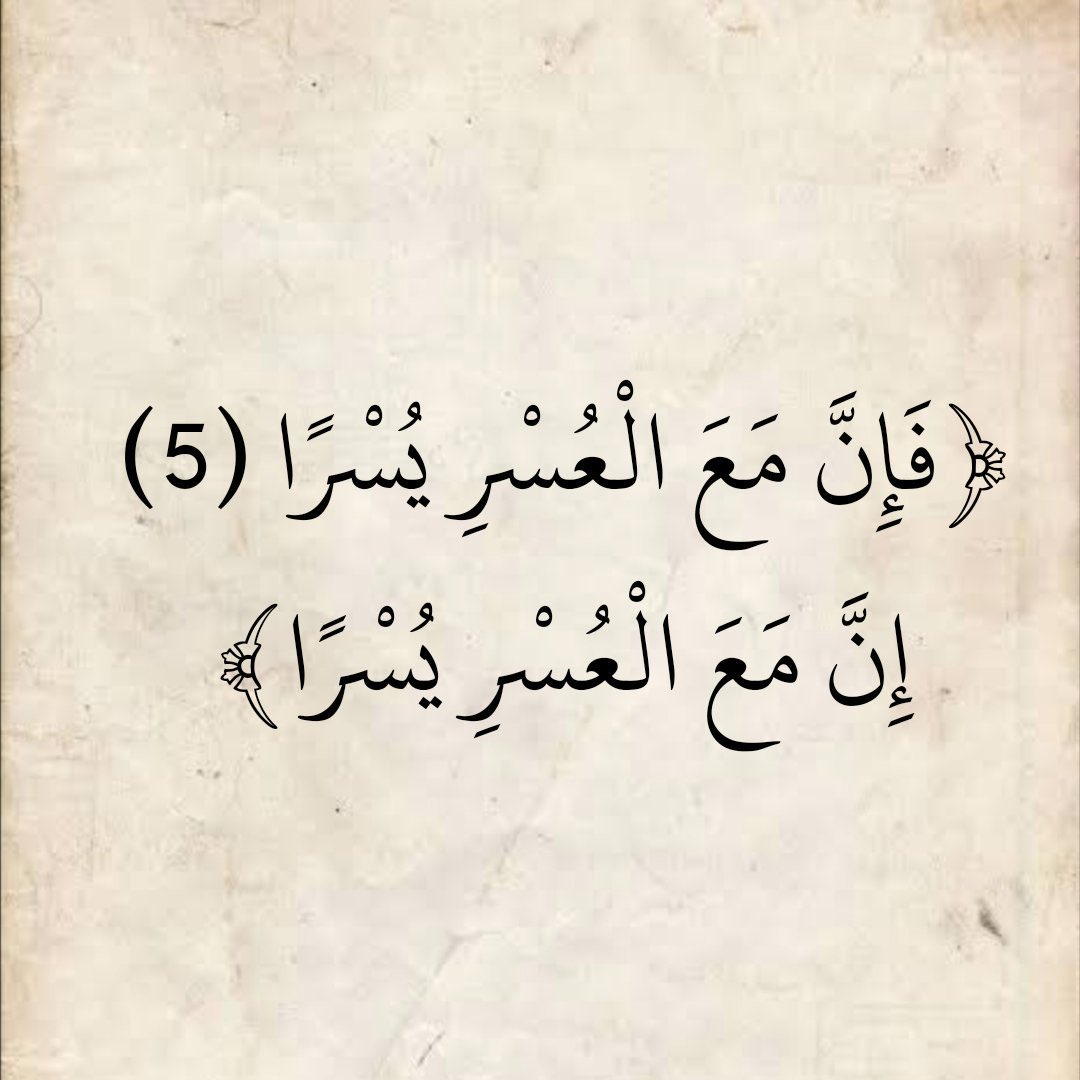 ﴿ فَإِنَّ مَعَ الْعُسْرِ يُسْرًا (5)
إِنَّ مَعَ الْعُسْرِ يُسْرًا ﴾